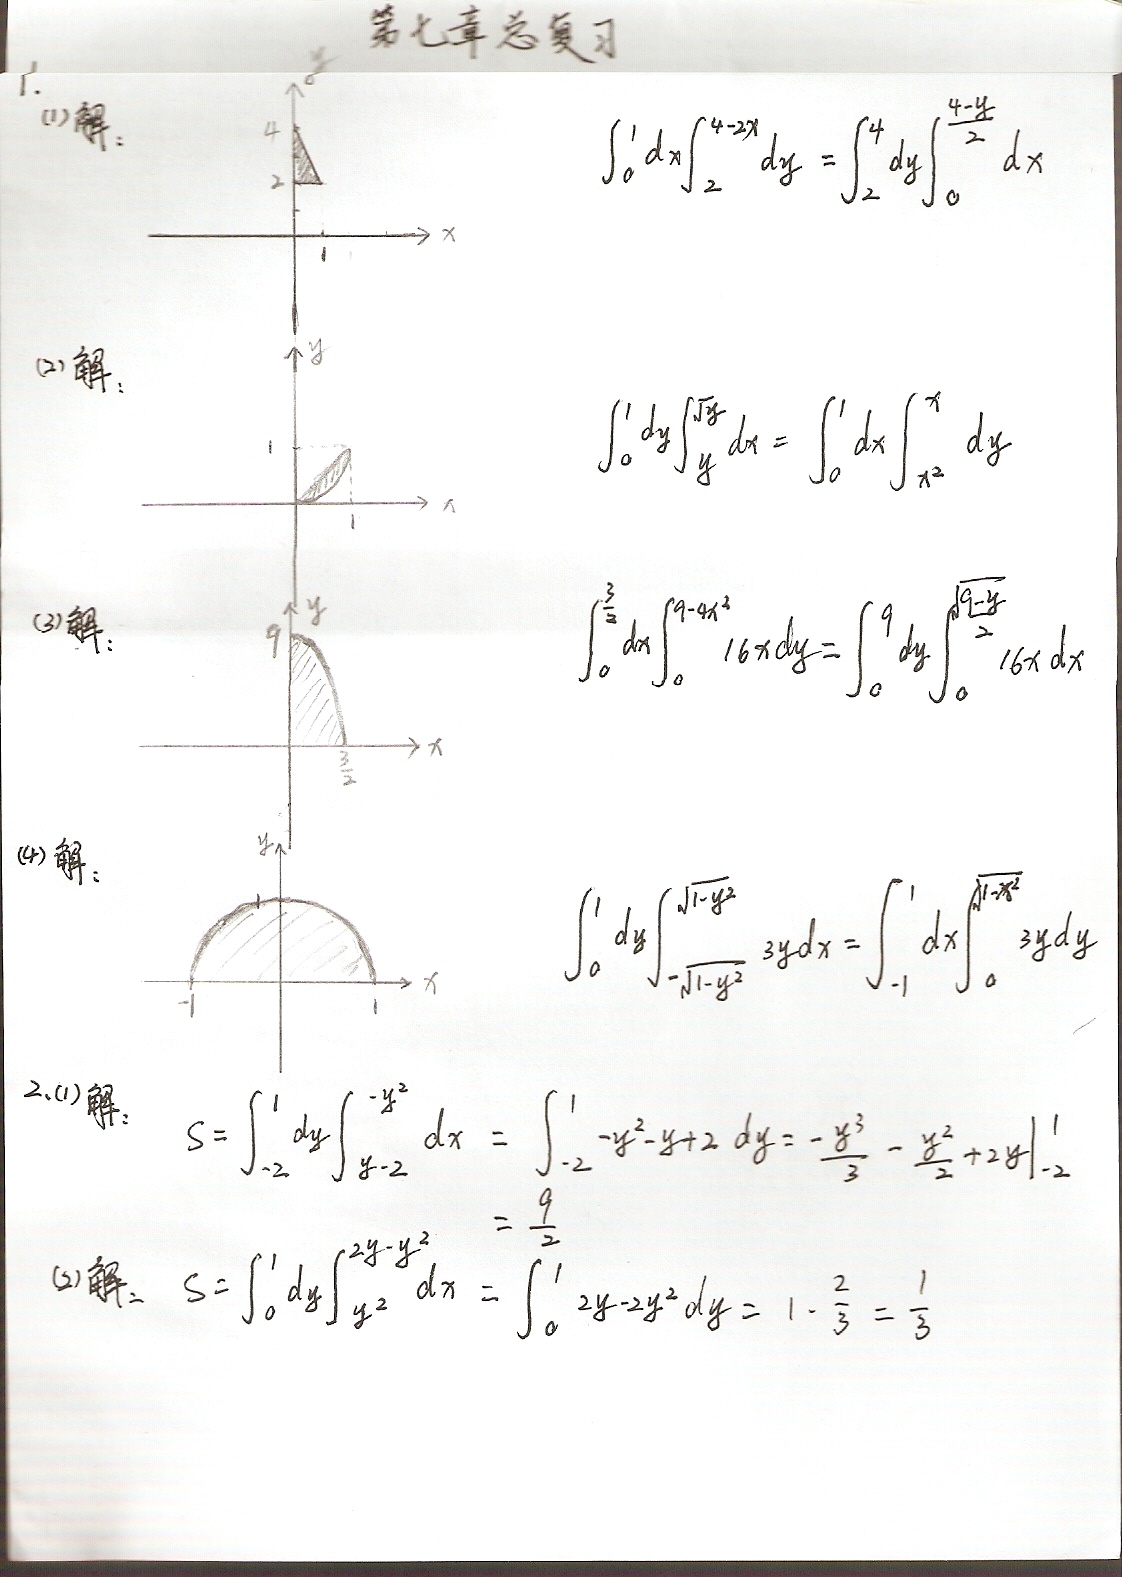 第七章总复习
1.
(1)解:
y
4
2
1
x
∫₀¹dx∫₂^(4-2x)dy = ∫₂⁴dy∫₀^((4-y)/2)dx
(2)解:
y
1
1
x
∫₀¹dy∫_y^(√y)dx = ∫₀¹dx∫_(x²)^x dy
(3)解:
y
9
3/2
x
∫₀^(3/2)dx∫₀^(9-4x²)16xdy = ∫₀⁹dy∫₀^(√(9-y)/2)16xdx
(4)解:
y
1
-1
1
x
∫₀¹dy∫_(-√(1-y²))^(√(1-y²))3ydx = ∫₋₁¹dx∫₀^(√(1-x²))3ydy
2.(1)解:
S = ∫₋₂¹dy∫_(y-2)^(-y²)dx = ∫₋₂¹ -y²-y+2 dy = -y³/3 - y²/2 + 2y|₋₂¹
= 9/2
(2)解: S = ∫₀¹dy∫_(y²)^(2y-y²)dx = ∫₀¹ 2y-2y²dy = 1 - 2/3 = 1/3